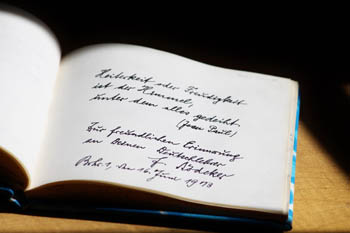 Heiterkeit oder Freudigkeit
ist der Himmel,
unter dem alles gedeiht,
(Jean Paul)
Zur freundlichen Erinnerung
an Deinen Deutschlehrer
F. Rödeker
den 16. Juni 1973